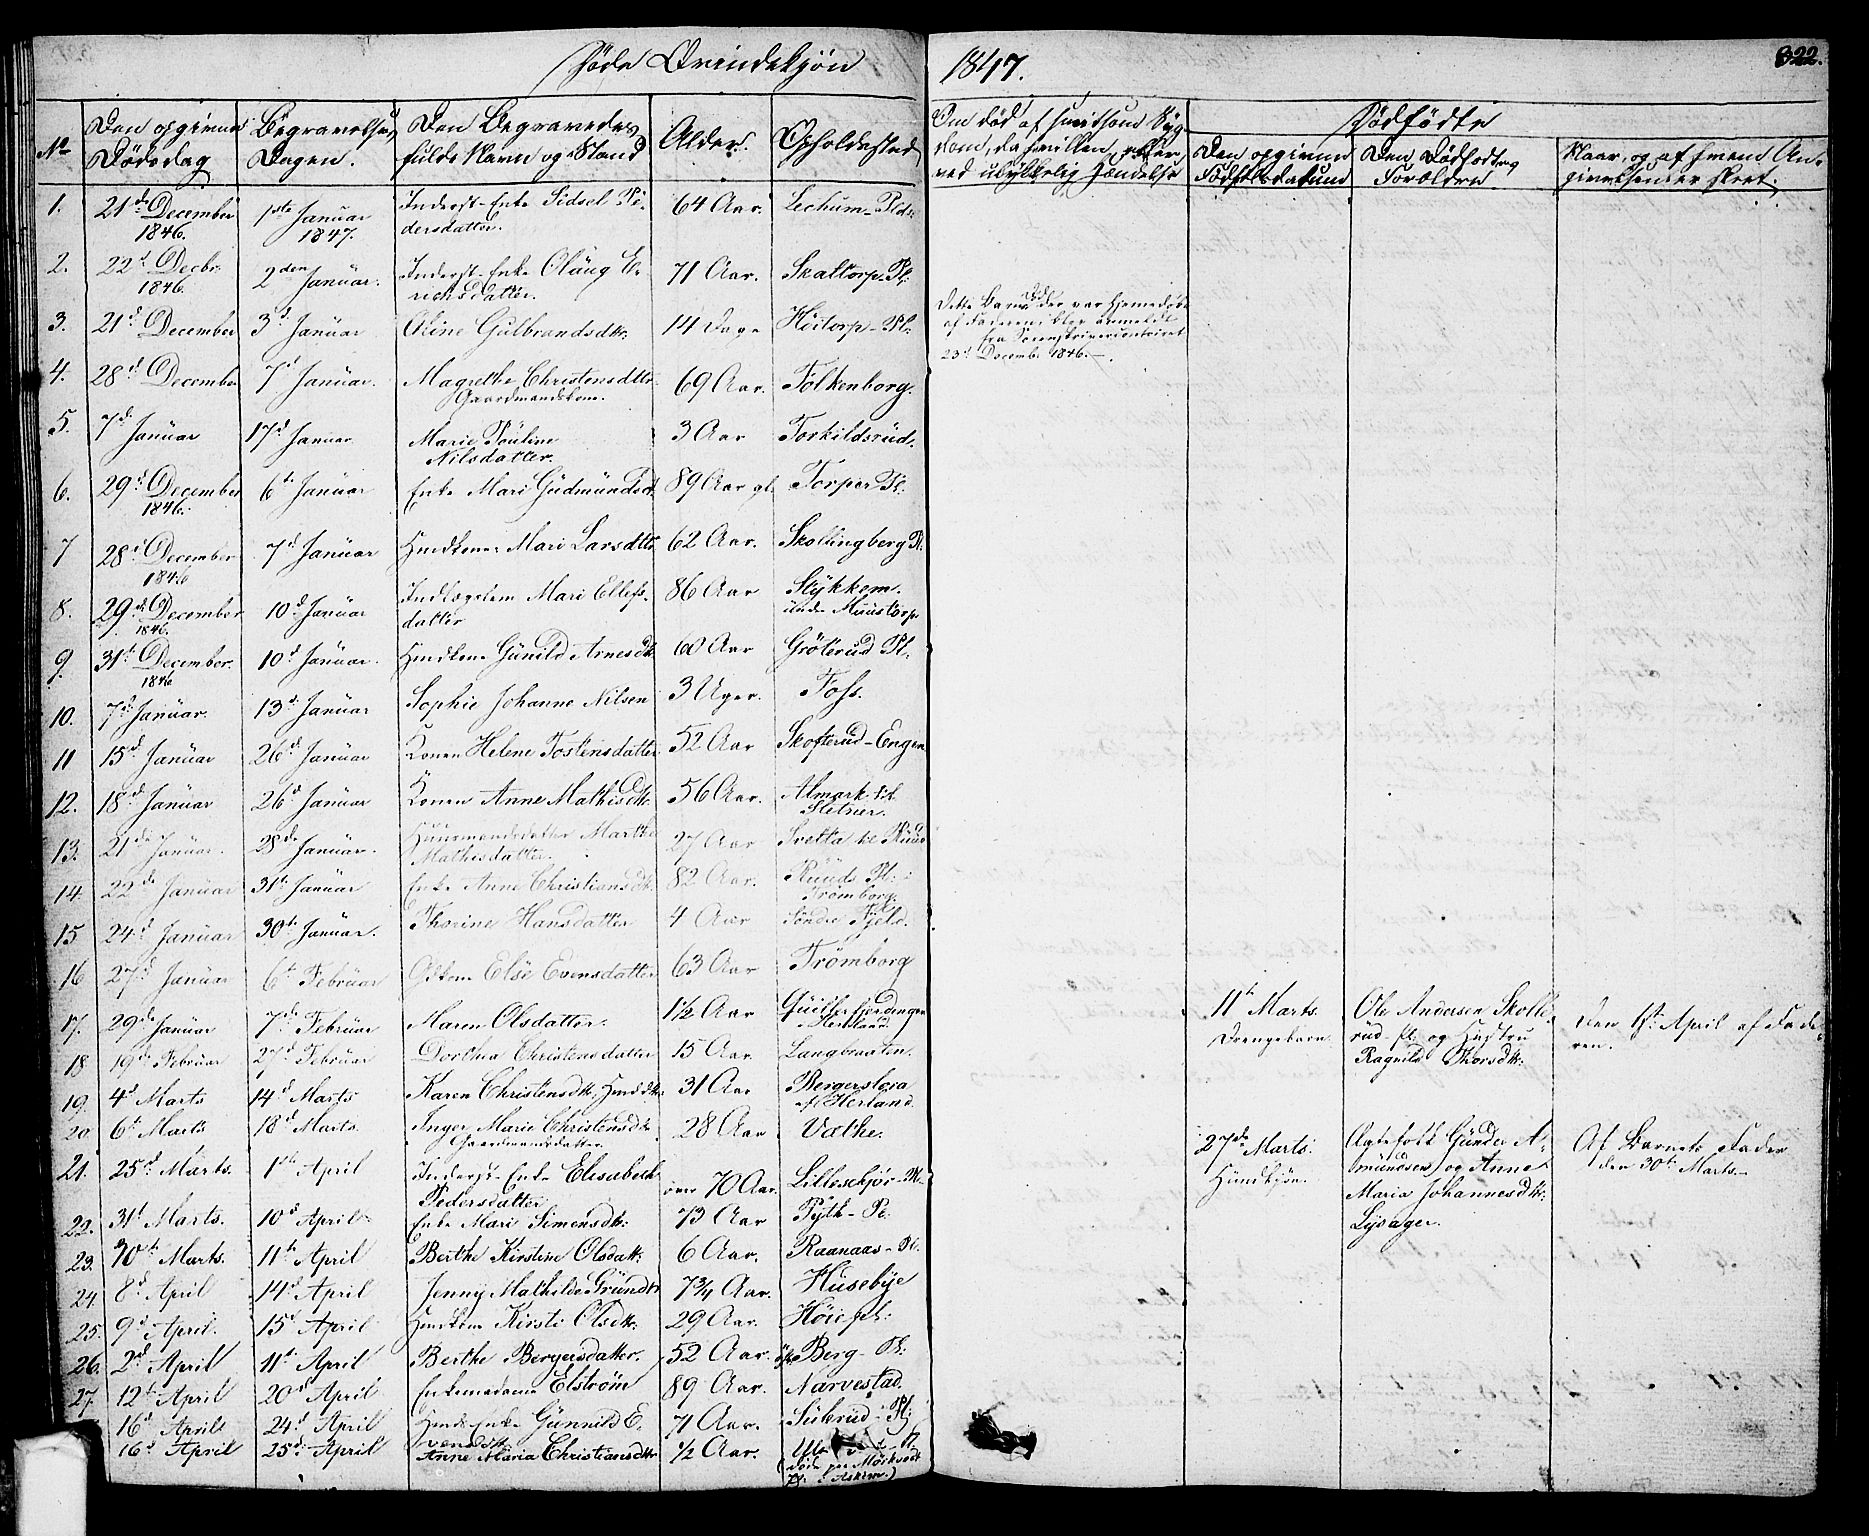 Døde Qvindekjön 1847. 322.
No | Den opgivne Dödsdag | Begravelses Dagen. | Den Begravedes fulde Navn og Stand | Alder. | Opholdssted | Om död af smitsom Syg-
dom, da hvilken, eller ved ulykkelig Hændelse | Dödfödte
Den opgivne Födselsdatum | Den Dödfödtes Forældre | Naar, og af hvem An-
givelsen er skeet.
1. 21d December 1846. 1ste Januar 1847. Inderst-Enke Sidsel Pe-
dersdatter. 64 Aar.
2. 22d Decbr. 1846. 2den Januar. Inderst-Enke Olaug E-
richsdatter. 71 Aar. Skaltorp-Pl:
3. 21d December 3d Januar Oline Gulbrandsdtr: 14 Dage Höitorp-Pl:
Dette Barns Död, der var hjemmedöbt
af Faderen, blev anmeldt
fra Sorenskrivercontoiret
23d December 1846.
4. 28d December 7d Januar. Magrethe Christensdttr. 69 Aar. Folkenborg.
Gaardmandskone.
5. 7d Januar 17d Januar Marie Pouline 3 Aar Torkildsrud.
Nilsdatter.
6. 29d December 1846. 6te Januar Enke Mari Gudmundsdt. 89 Aar gl. Torper Pl:
7 28d December 1846 7d Januar Hmdkone Mari Larsdttr 62 Aar. Skollingberg Pl.
8. 29d December 1846. 10d Januar Indlægslem Mari Ellefs-
datter 86 Aar Stykkem.
under Muustorp
9. 31te December. 1846 10d Januar. Hmdkone Gunild Arnesdtr 60 Aar Gröterud Pl.
10. 7d Januar. 13d Januar Sophie Johanne Nilsen 3 Uger. Foss.
11 15d Januar 26d Januar Konen Helene Tostensdatter 52 Aar Skofterud-Engen
12. 18d Januar 26d Januar Konen Anne Mathisdtr. 56 Aar. Almark til
Sletner.
13. 21de Januar. 28de Januar. Huusmandsdatter Marthe
Mathisdatter. 27 Aar Sletta til Ruud
14. 22de Januar 31te Januar Enke Anne Christiansdtr. 82 Aar. Ruuds Pl:
Trömborg.
15 24d Januar 30te Januar. Thorine Hansdatter 4 Aar Söndre Fjeld.
16 27d Januar 6te Februar Gdkone Else Evensdatter 63 Aar Trömborg
17. 29de Januar 7de Februar Maren Olsdatter. 1½ Aar
Hærland.
11te Marts. Drengebarn. Ole Andersen Skolle-
rud Pl. og Hustru
Ragnild Thorsdtr: Den 1ste April af Fade-
ren.
18 19de Februar 27d Februar Dorthea Christensdatter 15 Aar. Langbraaten.
19. 4d Marts 14d Marts Karen Christensdtr. Hmdsdtr: 31 Aar
af Herland.
20. 6te Marts 18d Marts. Inger Marie Christensdtr 28 Aar Vathe.
Gaardmandsdatter.
27de Marts. Ægtefolk Gunder A-
mundsen og Anne
Maria Johannesdtr:
Lysager. Af Barnets Fader
den 30te Marts.
21. 25d Marts. 1ste April Inderst-Enke Elisabeth
Pedersdatter over 70 Aar.
22. 31te Marts. 10d April Enke Mari Simensdtr: 73 Aar Pyth-Pl:
23. 30te Marts. 11te April Berthe Kirstine Olsdatt: 6 Aar. Raanaas-Pl.
24. 8d April 14d April Jenny Mathilde Gründt 7¾ Aar. Husebye
25. 9d April. 15d April Hmdkone Kirsti Olsdtr: 29 Aar. Höie pl:
26. 2d April 11te April Berthe Bergersdatter. 52 Aar. Berg-Pl:
27. 12te April 20d April Enkemadame Elström 89 Aar. Narvestad.
16d April 24d April Hmds-Enke Gunnild E-
vensdtr. 71 Aar. Suterud-Pl:
16d April 25d April Anne Maria Christiansdtr ½ Aar.